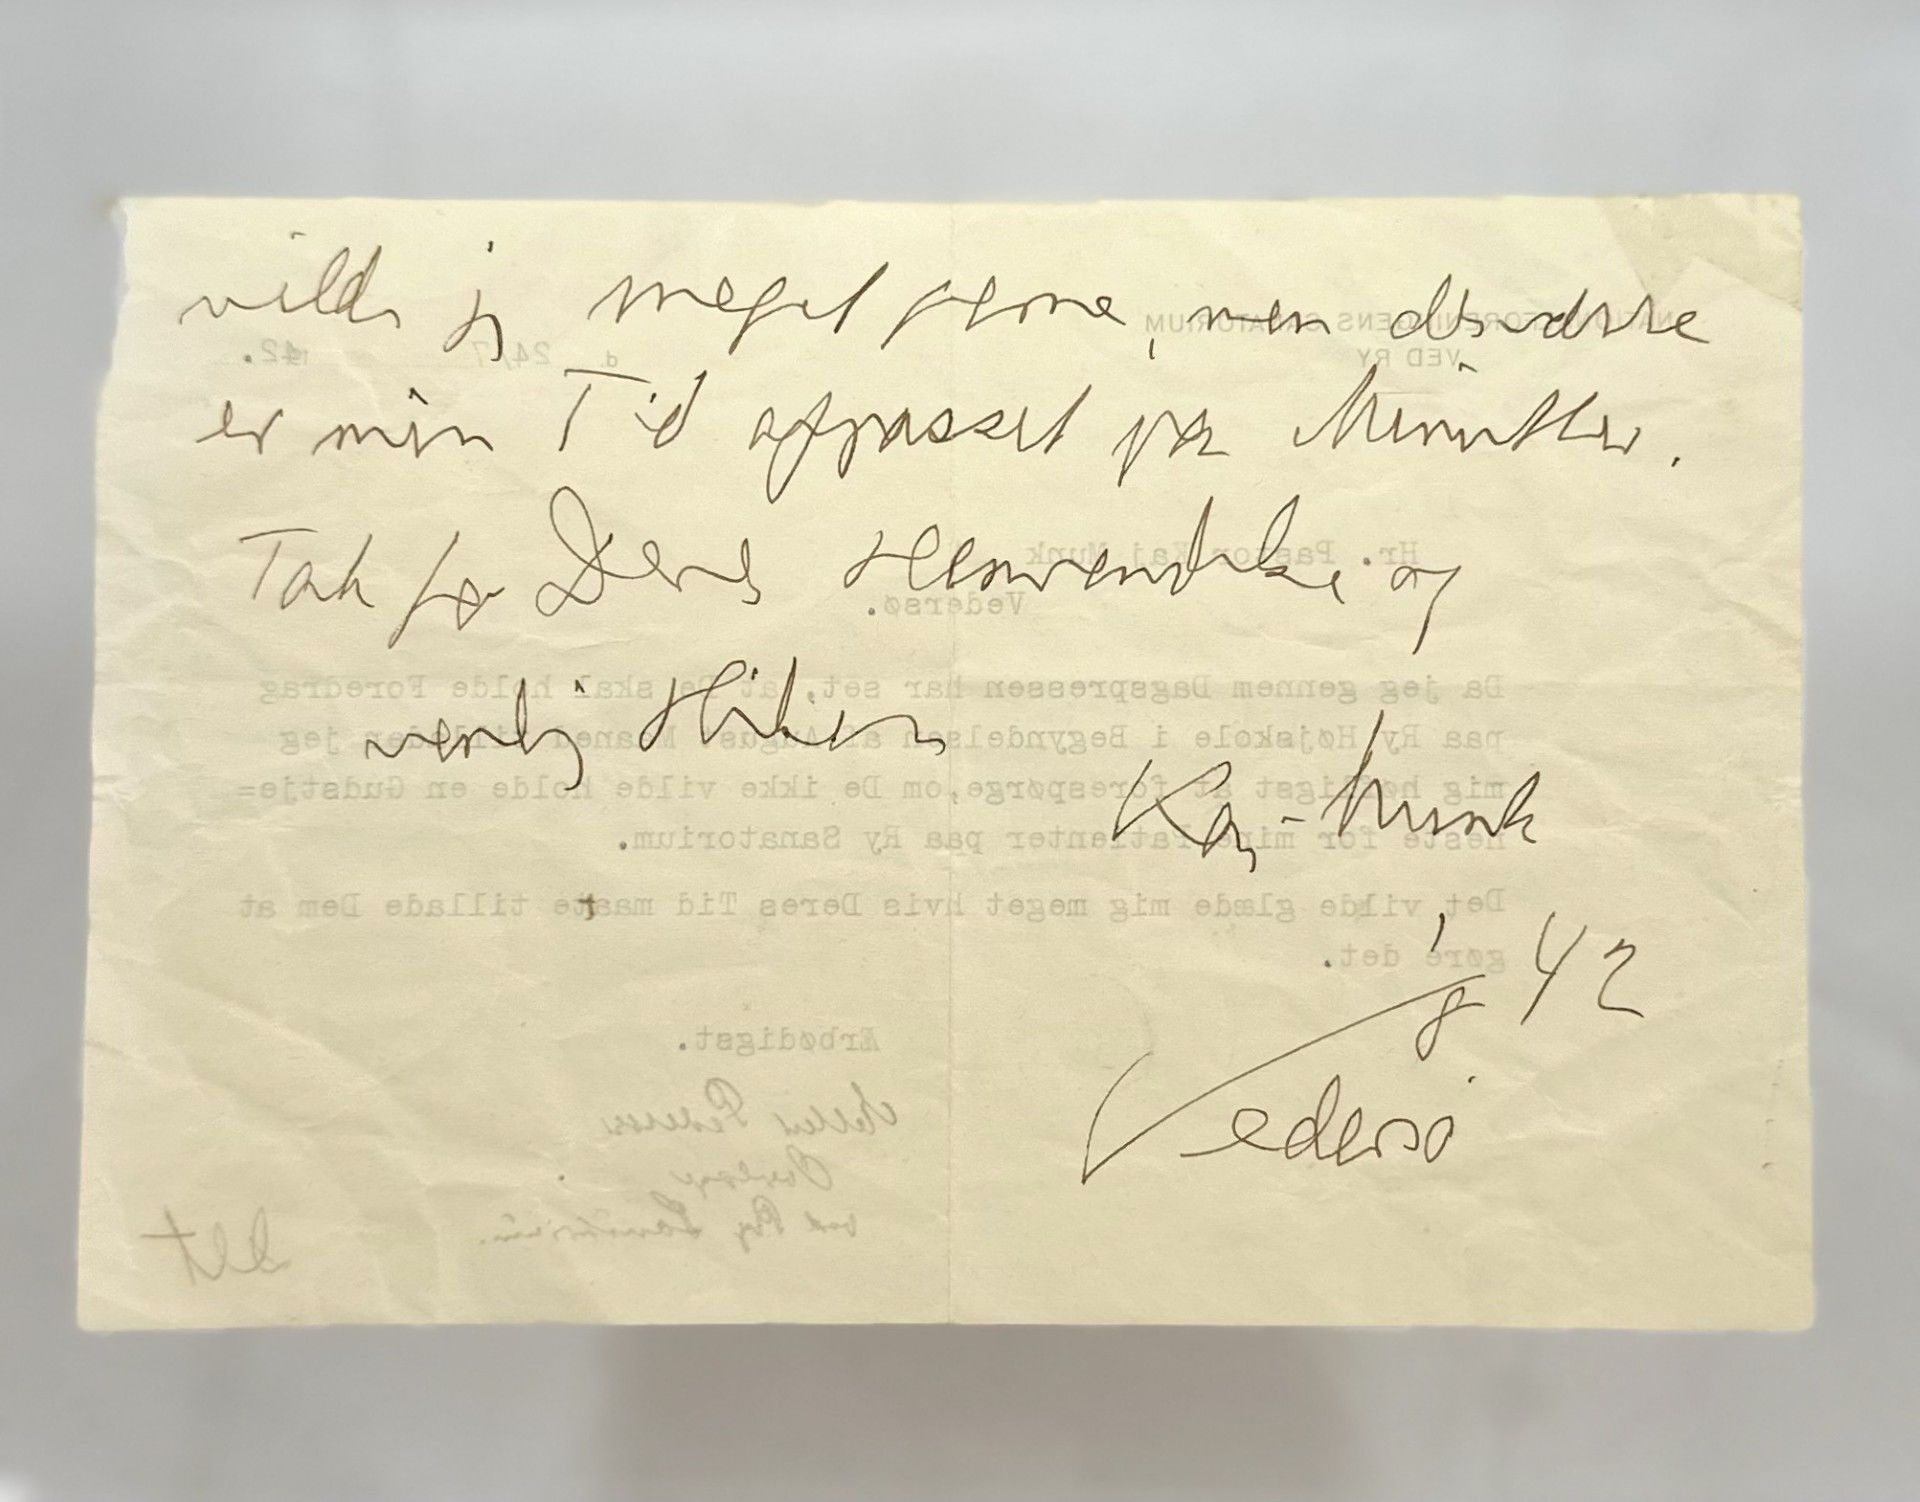 vilde jeg meget gerne, men desværre
er min Tid afpasset paa Minutter.
Tak for Deres Henvendelse og
venlig Hilsen
Kaj Munk
1/8 42
Vedersø
NATIONALFORENINGENS SANATORIUM
VED RY
d. 24/7 1942.
Hr. Pastor Kaj Munk
Vedersø.
Da jeg gennem Dagspressen har set, at De skal holde Foredrag
paa Ry Højskole i Begyndelsen af August Maaned tillader jeg
mig høfligst at forespørge,om De ikke vilde holde en Gudstje=
neste for mine Patienter paa Ry Sanatorium.
Det vilde glæde mig meget hvis Deres Tid maatte tillade Dem at
gøre det.
Ærbødigst.
ved Ry Sanatorium.
Det